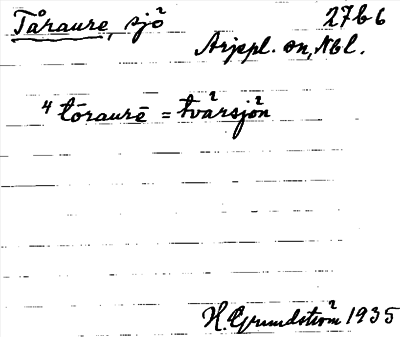 Tåraure, sjö 27b6
Arjepl. sn, Nbl.
4 tōraurē = tvärsjön
H. Grundström 1935